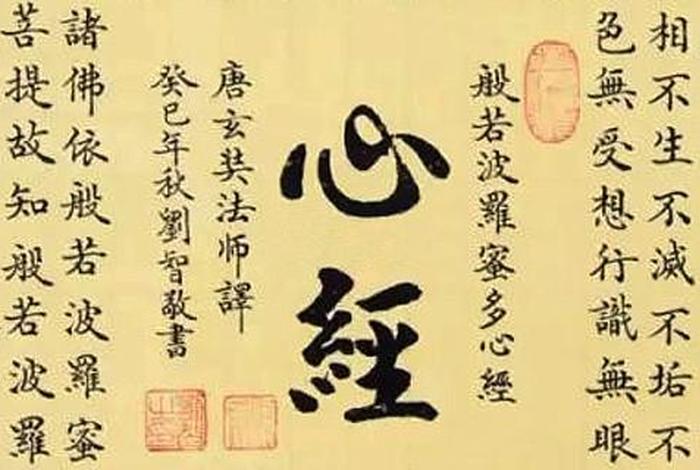 相不生不滅不垢不
色無受想行識無眼
般若波羅蜜多心經
心經
唐玄奘法師譯
癸巳年秋劉智敬書
諸佛依般若波羅蜜
菩提故知般若波羅